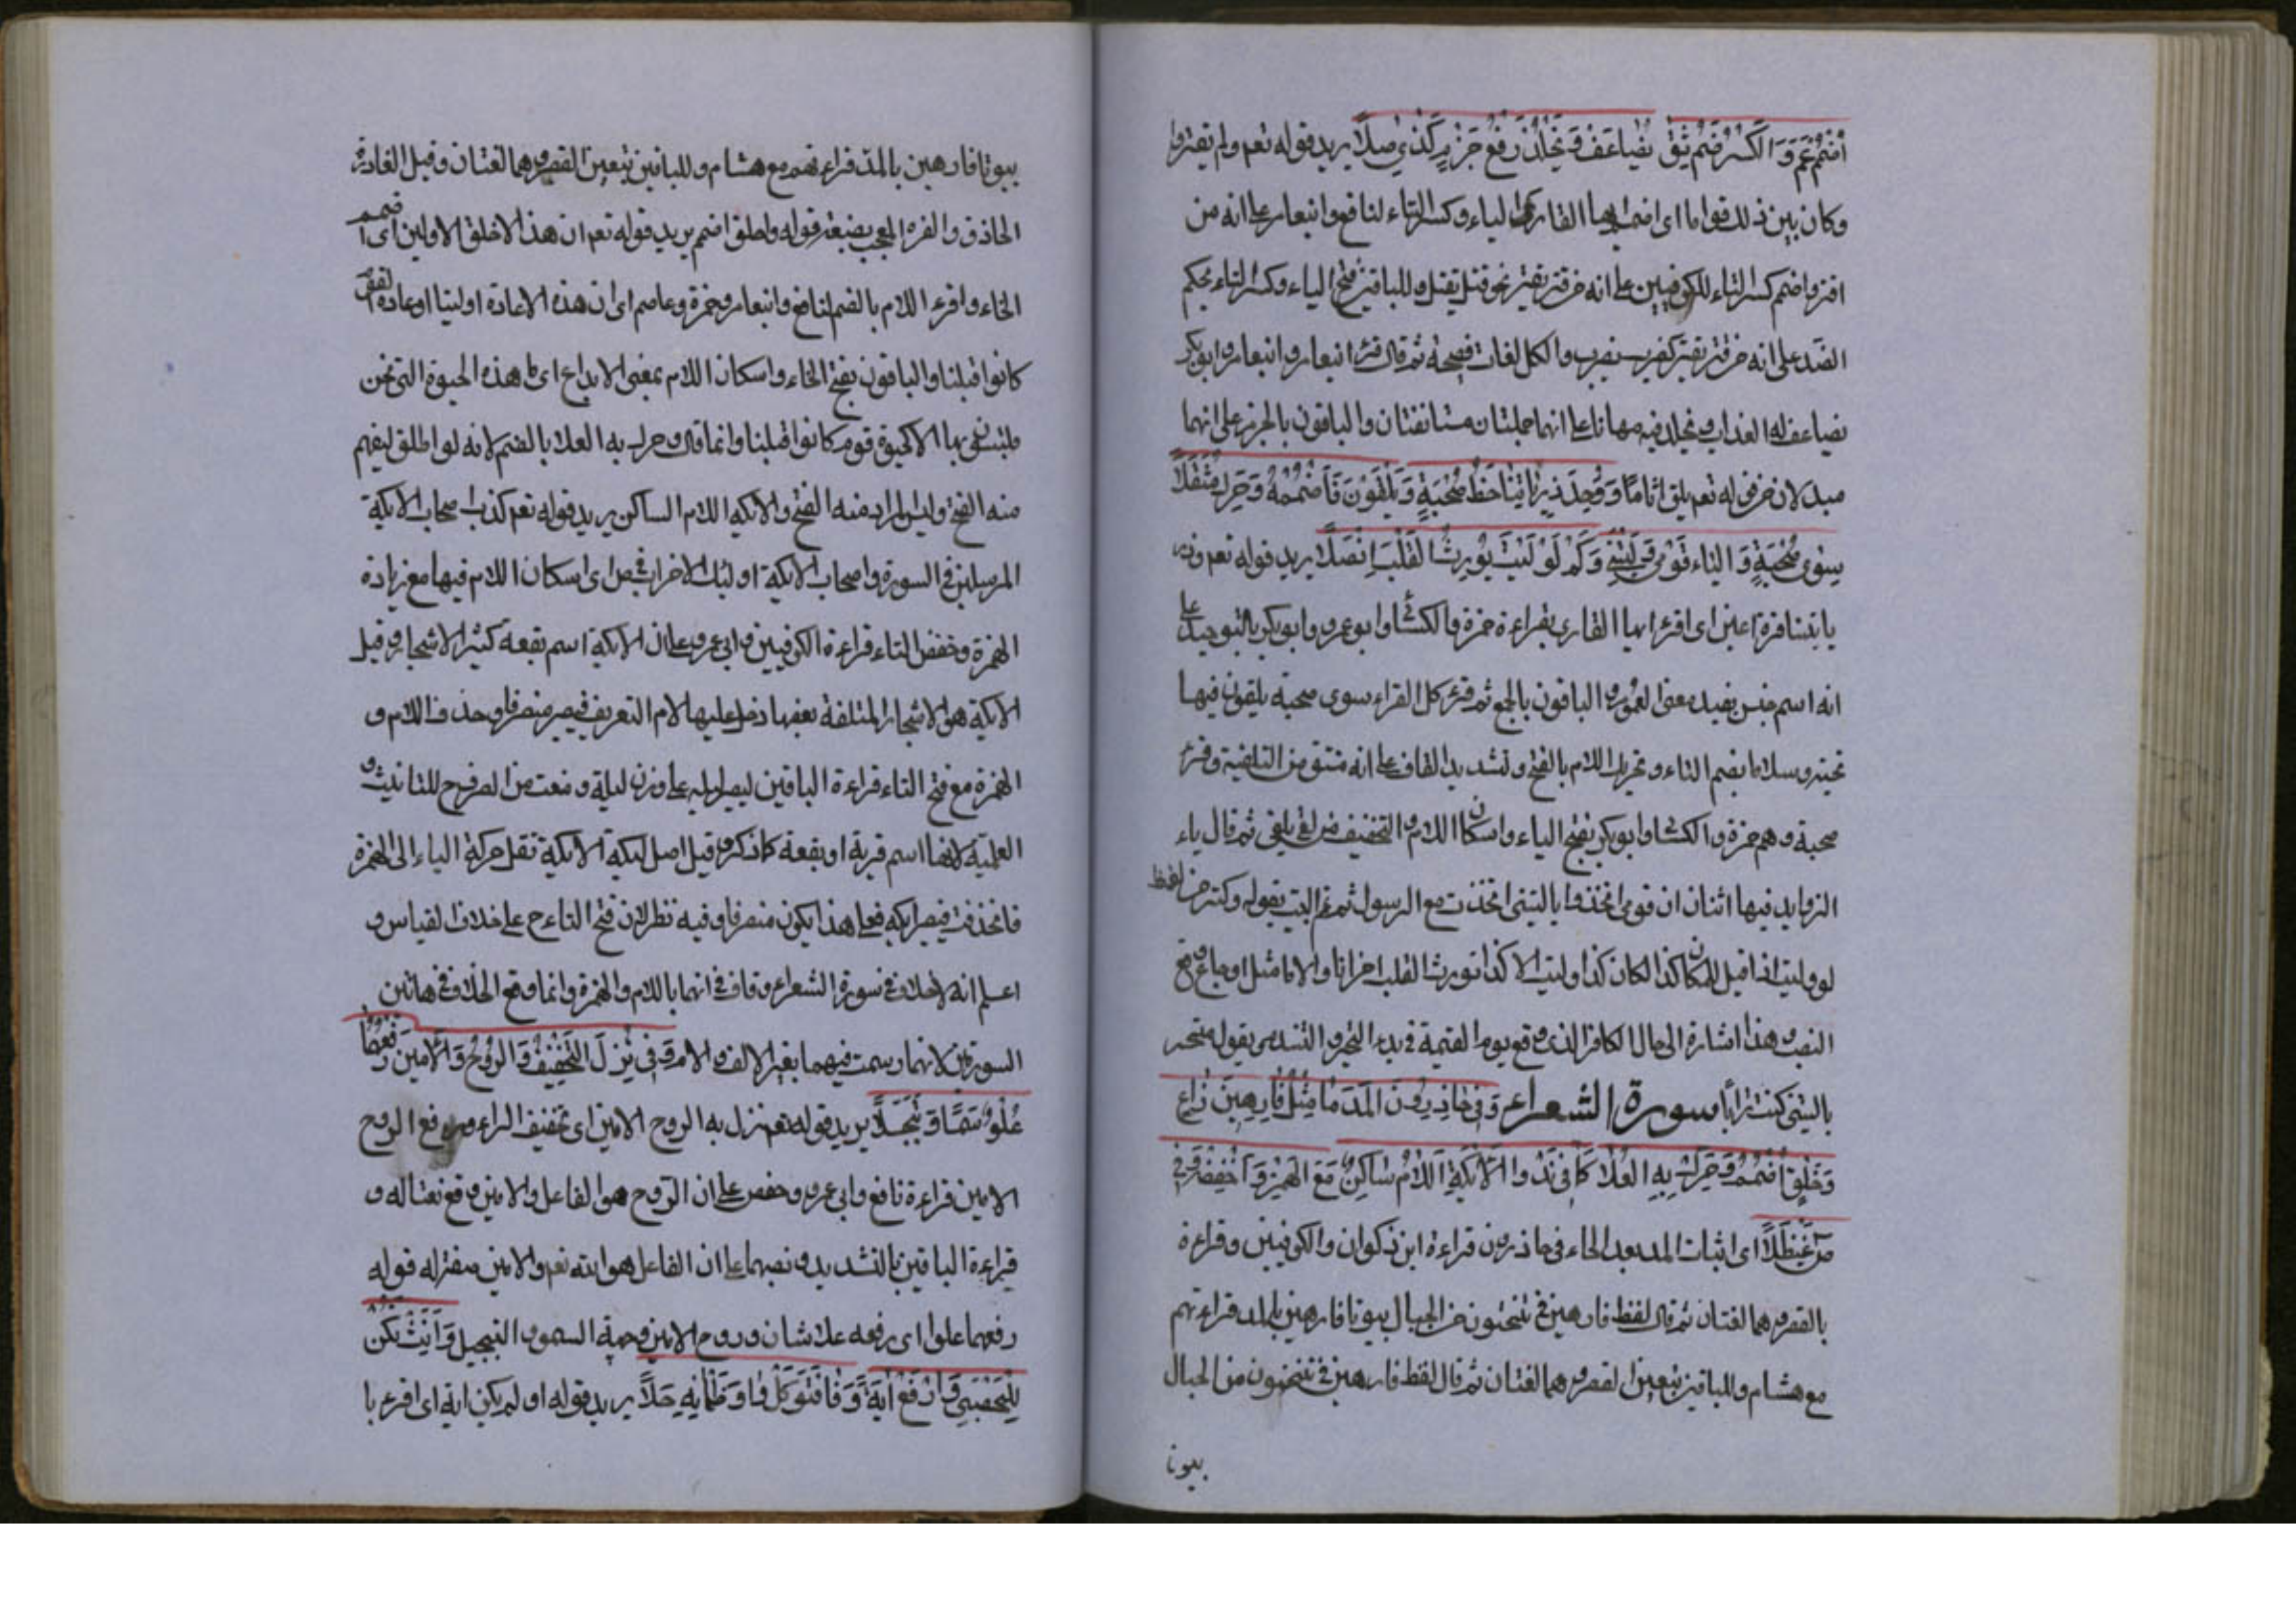 اضمم عم والكسر ضم ثق يضاعف ويخلد رفع جزم كذي صلا يريد قوله تعم ولم يقتروا
وكان بين ذلك قواما اى اضم ايها القارى الياء وكسر التاء لنافع وابنعامر على انه من
اقتر واضمم كسر التاء للكوفيين على انه من قتر يقتر نحو قتل يقتل وللباقين فتح الياء وكسر التاء بحكم
الضد على انه من قتر يقتر كضرب يضرب والكل لغات فصيحة ثم قال قرئ ابنعامر وابوبكر
يضاعف له العذاب ويخلد فيه مهانا على انهما جملتان مستانفتان والباقون بالجزم على انهما
مبدلان من قوله تعم يلق اثاما ووحد ذرياتنا حفظ صحبة ويلقون فاضممه وحرك مثقلا
سوى صحبة والياء قومي وليتني وكم لو وليت يورث القلب انصلا يريد قوله تعم وذر
ياتنا قرة اعين اى اقرء ايها القارى بقراءة حمزة والكسائى وابوعمرو وابوبكر بالتوحيد على
انه اسم جنس يفيد معنى العموم والباقون بالجمع ثم قرئ كل القراء سوى صحبة يلقون فيها
تحية وسلاما بضم التاء وتحريك اللام بالفتح وتشديد القاف على انه مشتق من التلقية وقرئ
صحبة وهم حمزة والكسائى وابوبكر بفتح الياء واسكان اللام والتخفيف من لقى يلقى ثم قال ياء
الزوايد فيها اثنان ان قومى اتخذوا يا ليتنى اتخذت مع الرسول ثم تمم البيت بقوله وكم من لفظ
لو وليت اذا قيل لو كان كذا لكان كذا وليت الا كذا تورث القلب احزانا والاما مثل اوجاع وقع
النصب هذا اشارة الى حال الكافر الذى وقع يوم القيمة فى يد التحير والتندم يقوله متحسر
يا ليتنى كنت ترابا سورة الشعراء وفى حاذرون المد ما مثل فارهين ذاع
وخلق اضمم وحرك به العلا كما فى ند والايكة اللام ساكن مع الهمز واخفضه وفى
ص غيطلا اى اثبات المد بعد الحاء فى حاذرون قراءة ابن ذكوان والكوفيين وقراءة
بالقصر وهما لغتان ثم قال لفظ فارهين فى تنحتون من الجبال بيوتا فارهين بالمد قراءتهم
مع هشام وللباقين بتعين القصر وهما لغتان ثم قال لفظ فارهين فى تنحتون من الجبال
بيوتا
بيوتا فارهين بالمد قراءتهم مع هشام وللباقين بتعين القصر وهما لغتان وقيل الفاره
الحاذق والفره المعجب بصنعة قوله وخلق اضمم يريد قوله تعم ان هذا الا خلق الاولين اى اضمم
الخاء واقرء اللام بالضم لنافع وابنعامر وحمزة وعاصم اى ان هذه الا عادة اولينا او عادة الفتى
كانوا قبلنا والباقون بفتح الخاء واسكان اللام بمعنى الابداع اى ما هذه الحيوة التى نحن
ملتبسون بها الا كحيوة قوم كانوا قبلنا وانما قال وحرك به العلا بالضم لانه لو اطلق ليفهم
منه الفتح وليس المراد منه الفتح والايكه اللام الساكن يريد قوله تعم كذب اصحاب الايكة
المرسلين فى السورة واصحاب الايكة اولئك الاحزاب فى ص اى اسكان اللام فيها مع زيادة
الهمزة وخفض التاء قراءة الكوفيين وابى عمرو على ان الايكة اسم بقعة كثير الاشجار وقيل
الايكة هو الاشجار الملتفة بعضها دخل عليها لام التعريف فيصير منصرفا وحذف اللام و
الهمزة مع فتح التاء قراءة الباقين ليصير ليكه على وزن ليلة ومنعت من الصرف ح للتانيث و
العلمية لانها اسم قرية او بقعة كما ذكر وقيل اصل ليكة الايكة نقل حركة الياء الى الهمزة
فاتخذفت فيصير ليكه فعلى هذا يكون منصرفا وفيه نظر لان فتح التاء ح على خلاف القياس و
اعلم انه لا خلاف فى سورة الشعراء وقاف فى انها باللام والهمزة وانما وقع الخلاف فى هاتين
السورتين لانهما رسمت فيهما بغير الالف والام وفى نزل التخفيف والروح والامين رفعهما
علو سما وتبجلا يريد قوله تعم نزل به الروح الامين اى تخفيف الزاء ورفع الروح
الامين قراءة نافع وابى عمرو وحفص على ان الروح هو الفاعل والامين وقع نعتا له و
قراءة الباقين بالتشديد ونصبهما على ان الفاعل هو الله تعم والامين صفة له قوله
رفعهما علوا اى رفعه علا شان وروح الامين وجهة السمو والتبجيل وانث يكن
لليحصبي وارفع اية وفا فتوكل واو ظمانه حلا يريد قوله اولم يكن اية اى اقرء با